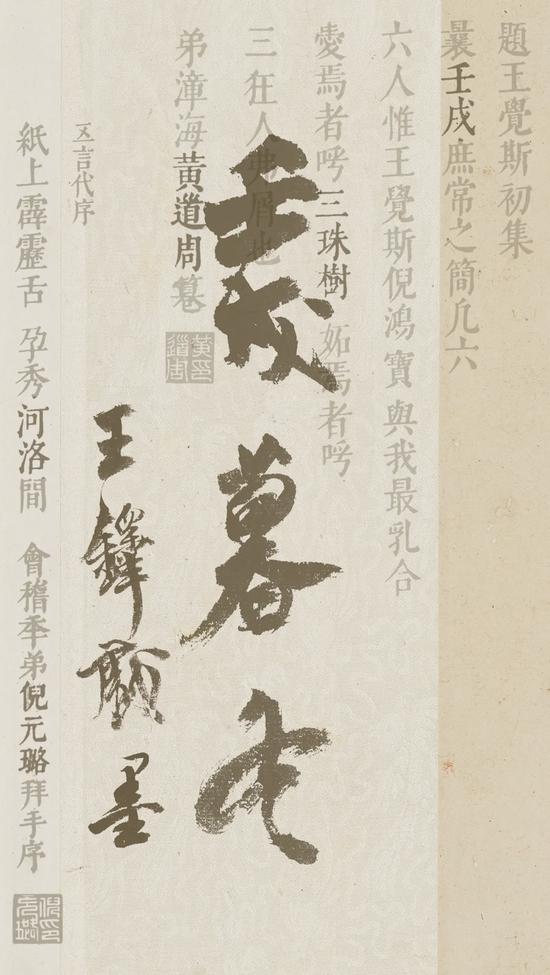 題王覺斯初集
曩壬戌庶常之簡凢六
六人惟王覺斯倪鴻寶與我最乳合
愛焉者呼三珠樹 妬焉者呼
三狂人弗屑也
弟漳海黃道周
黃道周印
壬戌暮冬
王鐸戲墨
五言代序
紙上霹靂舌 孕秀河洛間 會稽季弟倪元璐拜手序